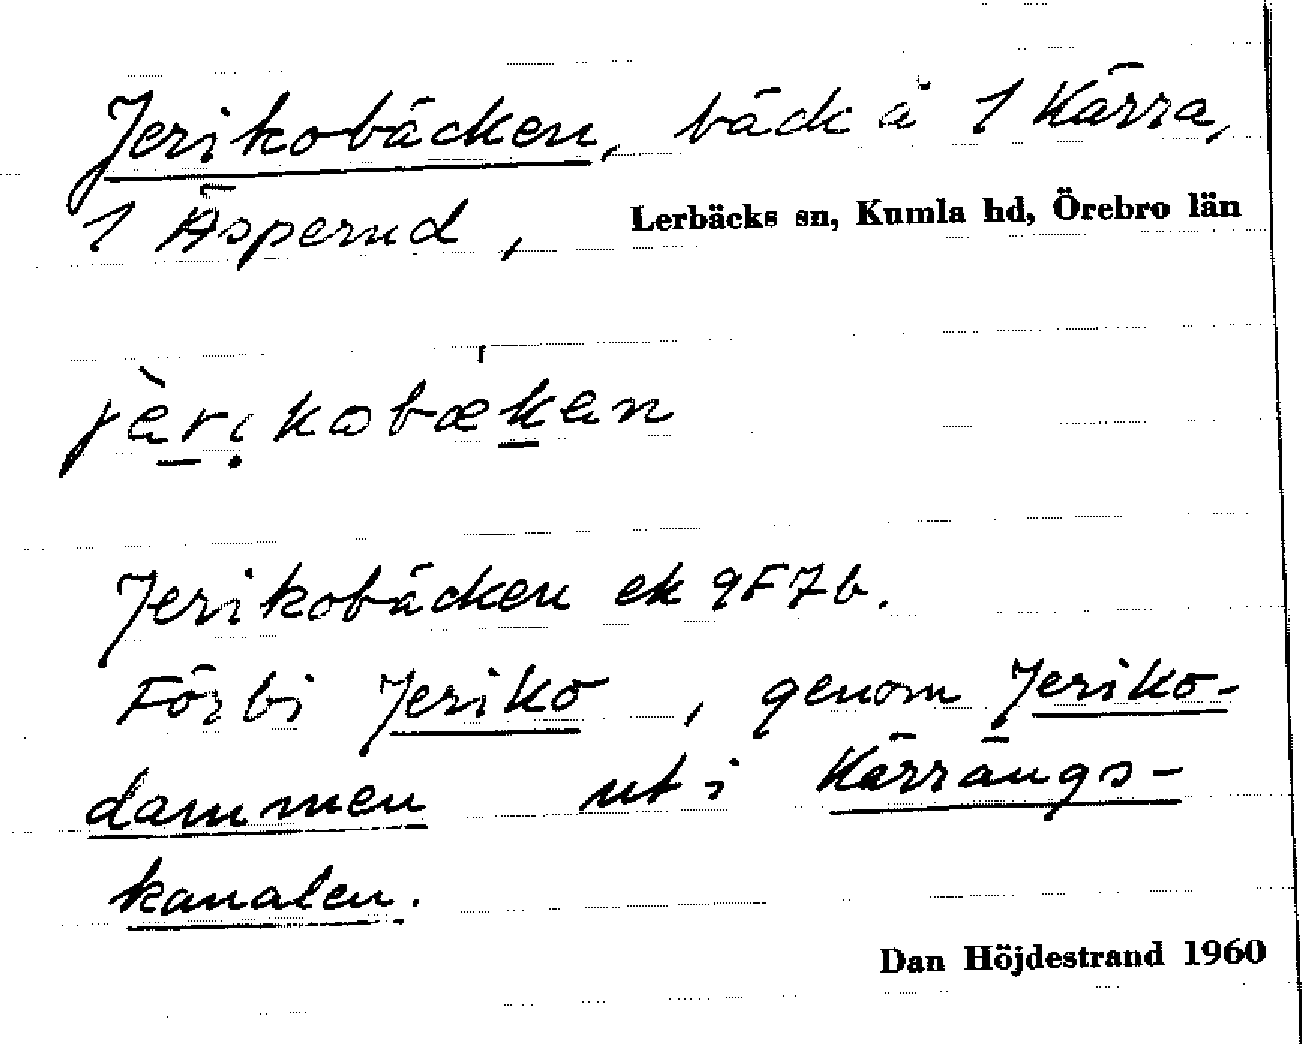 Jerikobäcken, bäck å 1 Kärra,
1 Äsperud, Lerbäcks sn, Kumla hd, Örebro län
jèrikobækan
Jerikobäcken ek 9F7b.
Förbi Jeriko, genom Jeriko-
dammen ut i Kärrängs-
kanalen.
Dan Höjdestrand 1960